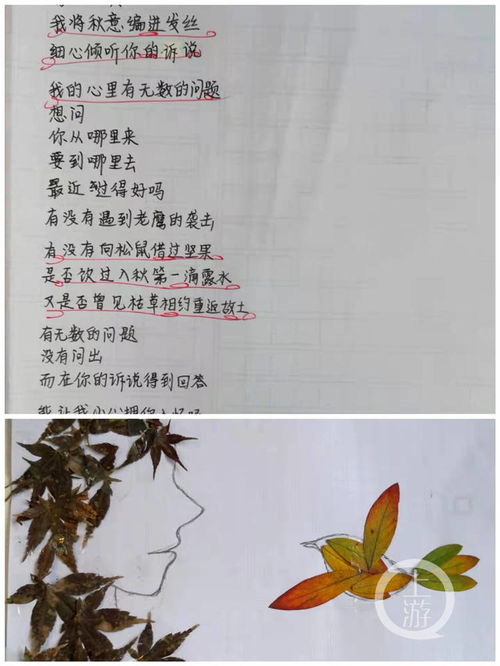 我将秋意编进发丝
细心倾听你的诉说
我的心里有无数的问题
想问
你从哪里来
要到哪里去
最近过得好吗
有没有遇到老鹰的袭击
有没有向松鼠借过坚果
是否饮过入秋第一滴露水
又是否曾见枯草相约重返故土
有无数的问题
没有问出
而在你的诉说得到回答
上游